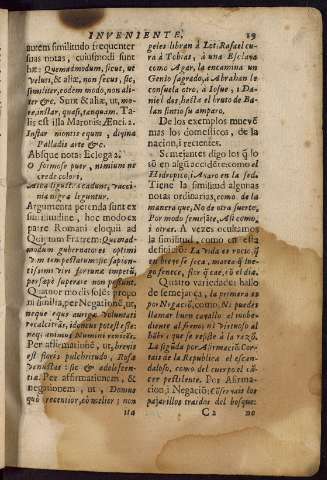 INVENIENTE. 19
autem similitudo frequenter
suas notas, cuiusmodi sunt
hæ: Quemadmodum, sicut, ut
veluti, & aliæ, non secus, sic,
similiter, eodem modo, non ali-
ter &c. Sunt & aliæ, ut, mo-
re, instar, quasi, tanquam. Ta-
lis est illa Maronis: Æneid. 2.
Instar montis equum, divina
Palladis arte &c.
Absque nota: Ecloga 2.
O formose puer, nimium ne
crede colori,
Alba ligustra cadunt, vacci-
nia nigra leguntur.
Argumenta petenda sunt ex
similitudine, hoc modo ex
patre Romani eloquii ad
Quintum Fratrem: Quemad-
modum gubernatores optimi
vim tempestatum: sic sapien-
tissimi viri fortunæ impetum,
persæpe superare non possunt.
Quatuor modis solet propo-
ni similitas, per Negationem, ut,
neque equus auriga voluntati
recalcitrãs, idoneus potest esse:
neq; animus Numini reniteus.
Per affirmationẽ, ut, brevis
est floris pulchritudo, Rosæ
venustas: sic & adolescen-
tia. Per affirmationem, &
negationem, ut, Domus
quò recentior, eò melior; non
ita
geles libran à Lot. Rafael cu-
ra à Tobias, à una Esclava
como Agar, la encamina un
Genio sagrado, à Abrahan le
consuela otro, à Iosue, i Da-
niel dos, hasta el bruto de Ba-
lan sintio su amparo.
De los exemplos muevẽ
mas los domesticos, de la
nacion, i recientes.
Semejantes digo los q̃ lo
sõ en algũ accidẽte: como el
Hidropico, i Avaro en la sed.
Tiene la similitud algunas
notas ordinarias, como de la
manera que, No de otra suerte,
Por modo semejãte, Assi como,
i otras. A veces ocultamos
la similitud, como en esta
del claro: La vida es rocio, q̃
en breve se seca, marea q̃ lue-
go fenece, flor q̃ cae, cõ el dia.
Quatro variedades hallo
de semejança, la primera es
por Negaciõ, como, Ni puedes
llamar buen cavallo el inobe-
diente al freno, ni virtuoso al
hõbre que se resiste à la razõ.
La segũda por Afirmaciõ. Cor-
rales de la Republica el escan-
daloso, como del cuerpo el cã-
cer pestilente. Por Afirma-
cion, i Negaciõ: Cõservais los
paxarillos traidos del bosque:
C 2 no